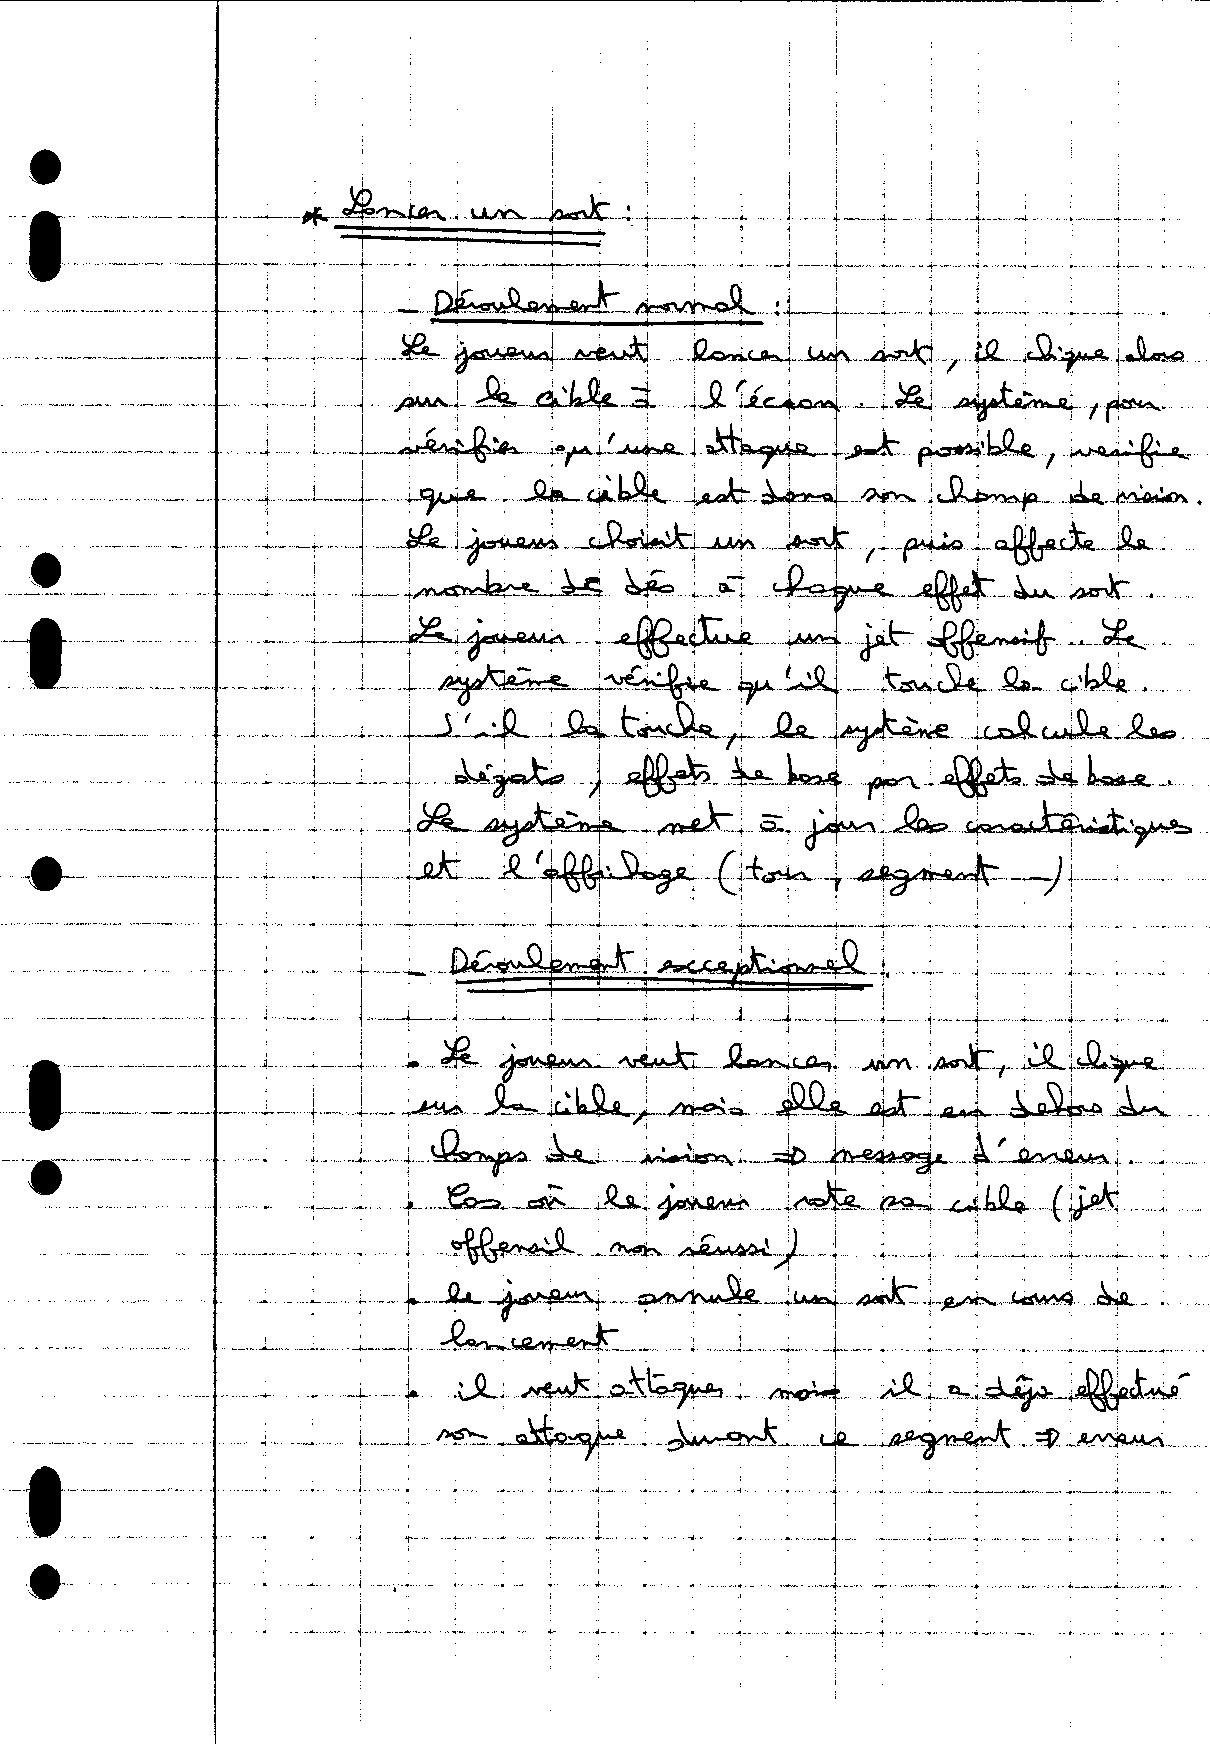 * Lancer un sort :
- Déroulement normal :
Le joueur veut lancer un sort, il clique alors
sur la cible à l'écran. Le système, pour
vérifier qu'une attaque est possible, verifie
que la cible est dans son champ de vision.
Le joueur choisit un sort, puis affecte le
nombre de dés à chaque effet du sort.
Le joueur effectue un jet offensif. Le
système vérifie qu'il touche la cible.
S'il la touche, le système calcule les
dégats, effets de base par effets de base.
Le système met à jour les caractéristiques
et l'affichage (tour, segment ...)
- Déroulement exceptionnel :
• Le joueur veut lancer un sort, il clique
sur la cible, mais elle est en dehors du
champs de vision => message d'erreur.
• Cas où le joueur rate sa cible (jet
offensif non réussi)
• le joueur annule un sort en cours de
lancement
• il veut attaquer mais il a déjà effectué
son attaque durant ce segment => erreur